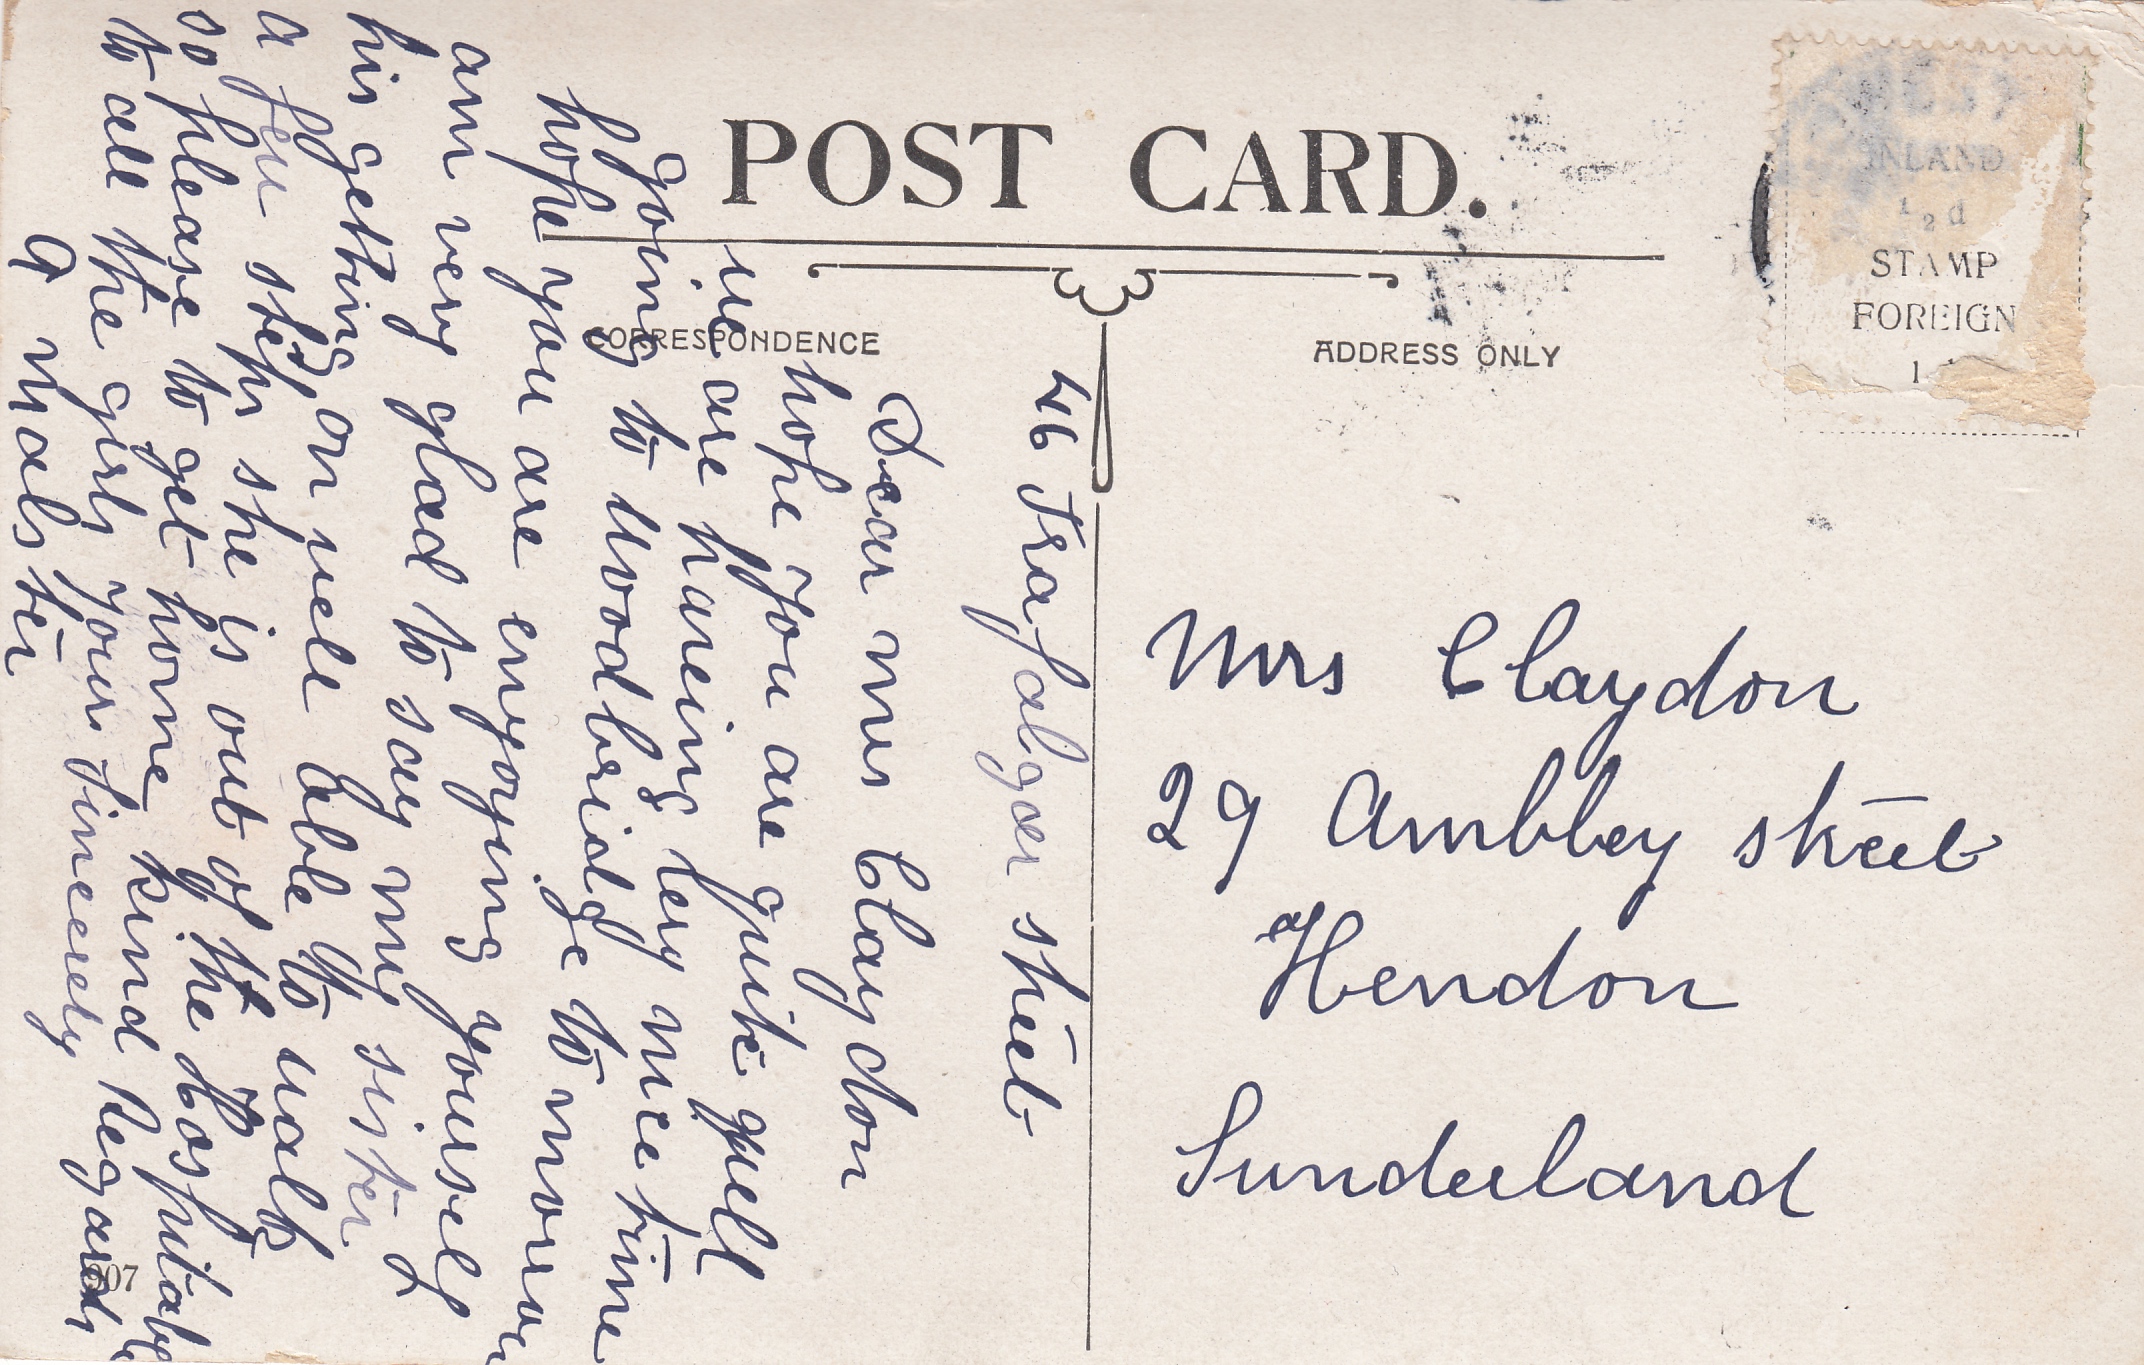 POST CARD.
CORRESPONDENCE
ADDRESS ONLY
INLAND
½d
STAMP
FOREIGN
1
46 Trafalgar street
Dear mrs Claydon
hope you are quite well
we are haveing very nice time
going to Woodbridge to morrow
hope you are enyoying yourself
am very glad to say my sister I
his getting on well able to walk
a few steps she is out of the Hospital
so please to get home kind Regards
to all the girls your sincerely
A Malster
Mrs Claydon
29 Ambley street
Hendon
Sunderland
07